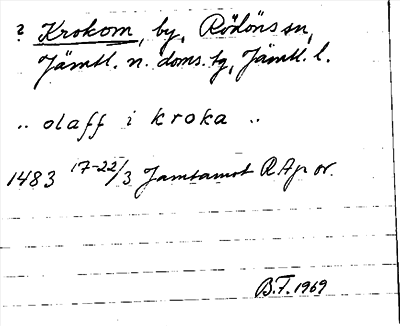 ? Krokom, by, Rödöns sn,
Jämtl. n. doms. tg, Jämtl. l.
.. olaff i kroka ..
1483 17-22/3 Jamtamot RAp or.
B.F. 1969